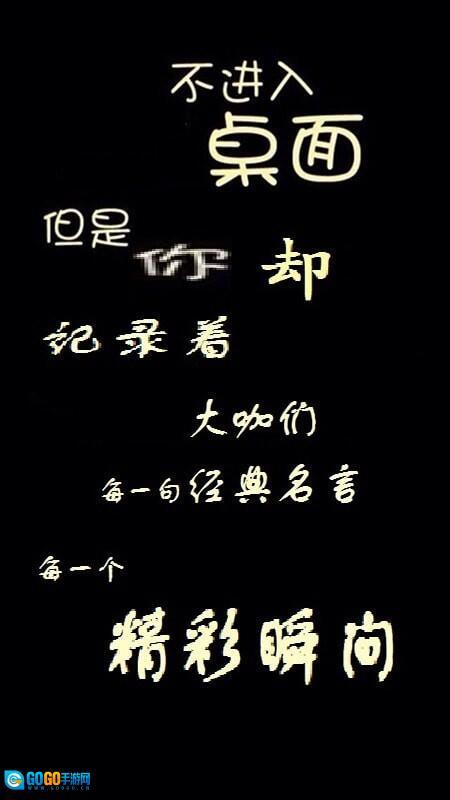 不进入
桌面
但是
你 却
记录着
大咖们
每一句经典名言
每一个
精彩瞬间
GOGO手游网
WWW.GOGO.CN